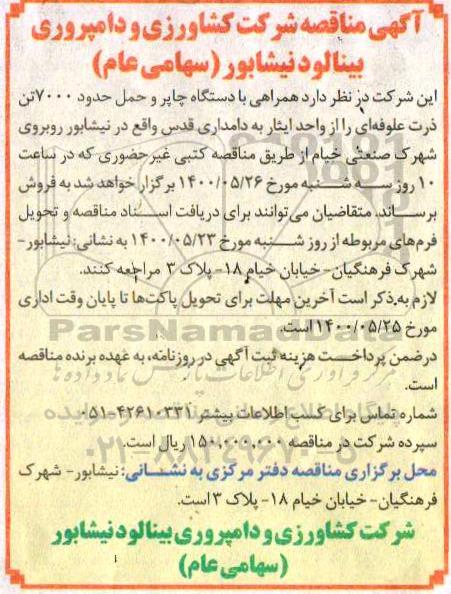 آگهی مناقصه شرکت کشاورزی و دامپروری
بینالود نیشابور (سهامی عام)
این شرکت در نظر دارد همراهی با دستگاه چاپر و حمل حدود ۷۰۰۰تن
ذرت علوفه‌ای را از واحد ایثار به دامداری قدس واقع در نیشابور روبروی
شهرک صنعتی خیام از طریق مناقصه کتبی غیرحضوری که در ساعت
۱۰ روز سه شنبه مورخ ۱۴۰۰/۰۵/۲۶ برگزار خواهد شد به فروش
برساند. متقاضیان می‌توانند برای دریافت اسناد مناقصه و تحویل
فرم‌های مربوطه از روز شنبه مورخ ۱۴۰۰/۰۵/۲۳ به نشانی: نیشابور-
شهرک فرهنگیان- خیابان خیام ۱۸- پلاک ۳ مراجعه کنند.
لازم به ذکر است آخرین مهلت برای تحویل پاکت‌ها تا پایان وقت اداری
مورخ ۱۴۰۰/۰۵/۲۵ است.
درضمن پرداخت هزینه ثبت آگهی در روزنامه، به عهده برنده مناقصه
است.
شماره تماس برای کسب اطلاعات بیشتر: ۴۲۶۱۰۳۳۱-۰۵۱
سپرده شرکت در مناقصه ۱۵۰,۰۰۰,۰۰۰ ریال است.
محل برگزاری مناقصه دفتر مرکزی به نشانی: نیشابور- شهرک
فرهنگیان- خیابان خیام ۱۸- پلاک ۳ است.
شرکت کشاورزی و دامپروری بینالود نیشابور
(سهامی عام)
ParsNamadData